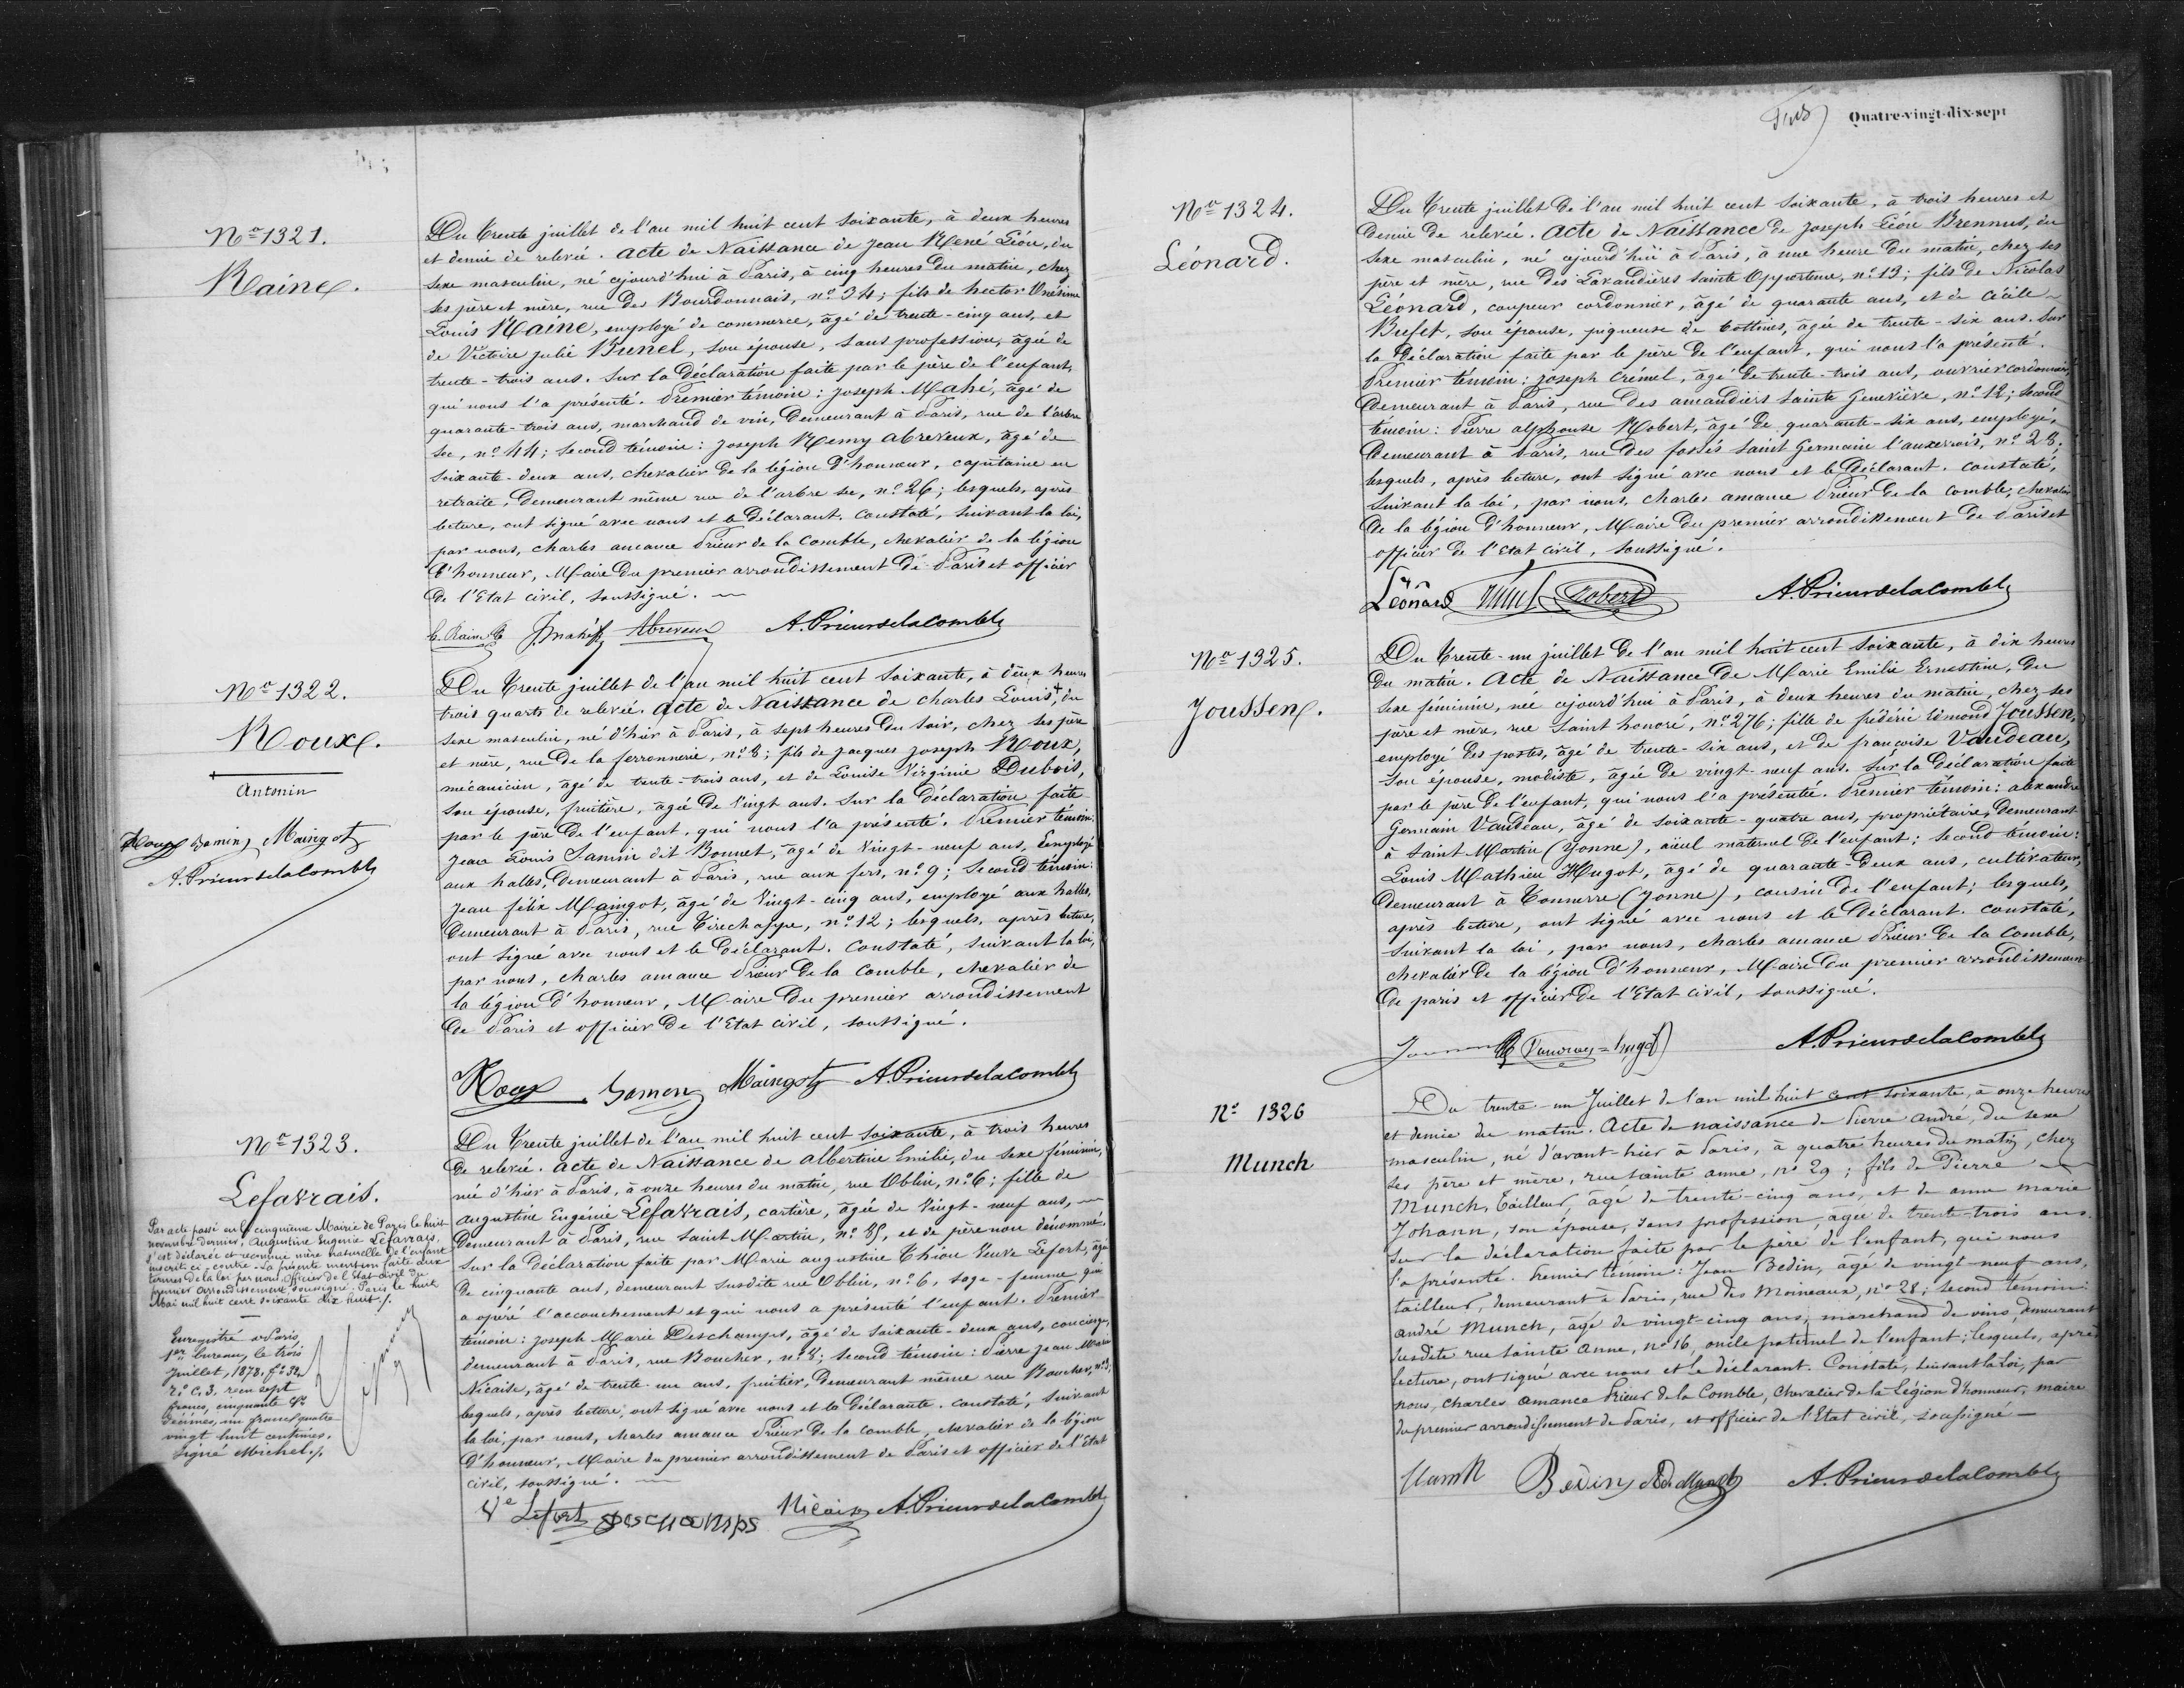 Nº 1321.
Raine.
Du trente juillet de l'an mil huit cent soixante, à deux heures
et demie de relevée. acte de Naissance de Jean René Léon, du
sexe masculin, né cejourd'hui à Paris, à cinq heures du matin, chez
ses père et mère, rue des Bourdonnais, nº 34; fils de hector Onésime
Louis Raine, employé de commerce, âgé de trente-cinq ans, et
de Victoire julie Bunel, son épouse, sans profession, âgée de
trente-trois ans. Sur la déclaration faite par le père de l'enfant,
qui nous l'a présenté. Premier témoin: Joseph Mahé, âgé de
quarante-trois ans, marchand de vin, demeurant à Paris, rue de l'arbre
sec, nº 44; second témoin: Joseph Remy abreveux, âgé de
soixante-deux ans, chevalier de la légion d'honneur, capitaine en
retraite, demeurant même rue de l'arbre sec, nº 26; lesquels, après
lecture, ont signé avec nous et le déclarant. Constaté, suivant la loi,
par nous, charles amance Prieur de la Comble, chevalier de la légion
d'honneur, Maire du premier arrondissement de Paris et officier
de l'Etat civil, soussigné.
Raine J. Mahé Abreveux A. Prieurdelacomble
Nº 1322.
Roux.
Antonin
Roux Samin Maingot
A. Prieurdelacomble
Du trente juillet de l'an mil huit cent soixante, à deux heures
trois quarts de relevée. acte de Naissance de charles Louis +, du
sexe masculin, né d'hier à Paris, à sept heures du soir, chez ses père
et mère, rue de la ferronnerie, nº 8; fils de Jacques Joseph Roux,
mécanicien, âgé de trente-trois ans, et de Louise Virginie Dubois,
son épouse, fruitière, âgée de vingt ans. Sur la déclaration faite
par le père de l'enfant, qui nous l'a présenté. Premier témoin:
Jean Louis Samin dit Bonnet, âgé de vingt-neuf ans, employé
aux halles, demeurant à Paris, rue aux fers, nº 9; second témoin:
Jean félix Maingot, âgé de vingt-cinq ans, employé aux halles,
demeurant à Paris, rue Tirechappe, nº 12; lesquels, après lecture,
ont signé avec nous et le déclarant. Constaté, suivant la loi,
par nous, charles amance Prieur de la Comble, chevalier de
la légion d'honneur, Maire du premier arrondissement
de Paris et officier de l'Etat civil, soussigné.
Roux Samin Maingot A. Prieurdelacomble
Nº 1323.
Lefavrais.
Par acte passé en la cinquième Mairie de Paris le huit
novembre dernier, Augustine Eugénie Lefavrais,
s'est déclarée et reconnue mère naturelle de l'enfant
inscrit ci-contre. La présente mention faite aux
termes de la loi par nous, Officier de l'Etat-civil du
premier Arrondissement, soussigné. Paris le huit
Mai mil huit cent soixante dix huit./.
Enregistré à Paris,
1er bureau, le trois
Juillet, 1878. fº 32
rº c. 3. reçu sept
francs, cinquante cs
décimes, un franc quatre
vingt huit centimes.
Signé Michel./.
Du trente juillet de l'an mil huit cent soixante, à trois heures
de relevée. acte de Naissance de albertine Emilie, du sexe féminin,
née d'hier à Paris, à onze heures du matin, rue Oblin, nº 6; fille de
augustine Eugénie Lefavrais, cartière, âgée de vingt-neuf ans,
demeurant à Paris, rue Saint Martin, nº 85, et de père non dénommé.
Sur la déclaration faite par Marie augustine Thiou Veuve Lefort, âgée
de cinquante ans, demeurant susdite rue Oblin, nº 6, sage-femme qui
a opéré l'accouchement et qui nous a présenté l'enfant. Premier
témoin: Joseph Marie Deschamps, âgé de soixante-deux ans, concierge,
demeurant à Paris, rue Boucher, nº 8; second témoin: Pierre Jean Marie
Nicaise, âgé de trente-un ans, fruitier, demeurant même rue Boucher, nº 3;
lesquels, après lecture, ont signé avec nous et la déclarante. Constaté, suivant
la loi, par nous, charles amance Prieur de la Comble, chevalier de la légion
d'honneur, Maire du premier arrondissement de Paris et officier de l'Etat
civil, soussigné.
Ve Lefort Deschamps Nicaise A. Prieurdelacomble
Quatre-vingt-dix-sept
Nº 1324.
Léonard.
Du trente juillet de l'an mil huit cent soixante, à trois heures et
demie de relevée. Acte de Naissance de Joseph Léon Brennus, du
sexe masculin, né cejourd'hui à Paris, à une heure du matin, chez ses
père et mère, rue des Lavandières Sainte Opportune, nº 13; fils de Nicolas
Léonard, coupeur cordonnier, âgé de quarante ans, et de Cécile
Bufet, son épouse, piqueuse de bottines, âgée de trente-six ans. Sur
la déclaration faite par le père de l'enfant, qui nous l'a présenté.
Premier témoin: Joseph Crémel, âgé de trente-trois ans, ouvrier cordonnier,
demeurant à Paris, rue des amandiers Sainte Geneviève, nº 12; second
témoin: Pierre alphonse Robert, âgé de quarante-six ans, employé,
demeurant à Paris, rue des fossés Saint Germain l'auxerrois, nº 28;
lesquels, après lecture, ont signé avec nous et le déclarant. Constaté,
suivant la loi, par nous, charles amance Prieur de la Comble, chevalier
de la légion d'honneur, Maire du premier arrondissement de Paris et
officier de l'Etat civil, soussigné.
Léonard Robert A. Prieurdelacomble
Nº 1325.
Joussen.
Du trente-un juillet de l'an mil huit cent soixante, à dix heures
du matin. Acte de Naissance de Marie Emilie Ernestine, du
sexe féminin, née cejourd'hui à Paris, à deux heures du matin, chez ses
père et mère, rue Saint honoré, nº 276; fille de frédéric Edmond Joussen,
employé des postes, âgé de trente-six ans, et de françoise Vaudeau,
son épouse, modiste, âgée de vingt-neuf ans. Sur la déclaration faite
par le père de l'enfant, qui nous l'a présentée. Premier témoin: alexandre
Germain Vaudeau, âgé de soixante-quatre ans, propriétaire, demeurant
à Saint Martin (Yonne), aïeul maternel de l'enfant; second témoin:
Louis Mathieu Hugot, âgé de quarante-deux ans, cultivateur,
demeurant à Tonnerre (Yonne), cousin de l'enfant; lesquels,
après lecture, ont signé avec nous et le déclarant. Constaté,
suivant la loi, par nous, charles amance Prieur de la Comble,
chevalier de la légion d'honneur, Maire du premier arrondissement
de paris et officier de l'Etat civil, soussigné.
hugot A. Prieurdelacomble
Nº 1326
Munch
Du trente-un Juillet de l'an mil huit cent soixante, à onze heures
et demie du matin. Acte de naissance de Pierre André, du sexe
masculin, né d'avant-hier à Paris, à quatre heures du matin, chez
ses père et mère, rue Sainte anne, nº 29; fils de Pierre
Munch, Tailleur, âgé de trente-cinq ans, et de anne marie
Johann, son épouse, sans profession, âgée de trente-trois ans.
Sur la déclaration faite par le père de l'enfant, qui nous
l'a présenté. Premier témoin: Jean Bedin, âgé de vingt-neuf ans,
tailleur, demeurant à Paris, rue des Moineaux, nº 28; second témoin:
andré Munch, âgé de vingt-cinq ans, marchand de vins, demeurant
susdite rue Sainte Anne, nº 16, oncle paternel de l'enfant; lesquels, après
lecture, ont signé avec nous et le déclarant. Constaté, suivant la Loi, par
nous, Charles Amance Prieur de la Comble, Chevalier de la Légion d'honneur, maire
du premier arrondissement de Paris, et officier de l'Etat civil, soussigné
Munch Bedin Ad. Munch A. Prieurdelacomble